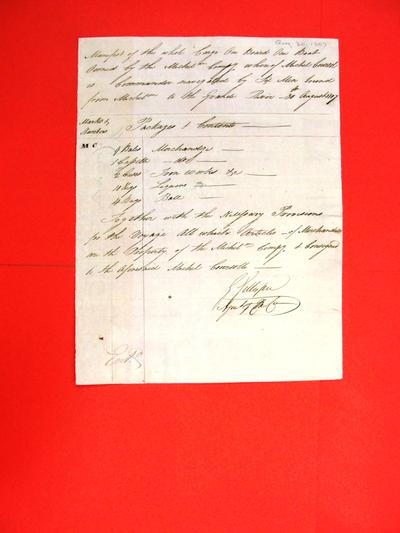 Aug 30, 1807
Manifest of the whole Cargo On Board One Boat
Owned by the Michn. Compy. whereof Michel
is Commander navigated by Men bound
from Michn. to the Grand River 30th August 1807
Marks & Numbers
Packages & Contents
M C
9 Bales Merchandze
1 Cassette do
2 Cases Iron works &c
10 Kegs
4 Bags Ball
Together with the Necessary Provisions
for the Voyage All which Articles of Merchandize
are the Property of the Michn. Compy. & Consigned
to the aforesaid Michel
G Gillespie
Agent